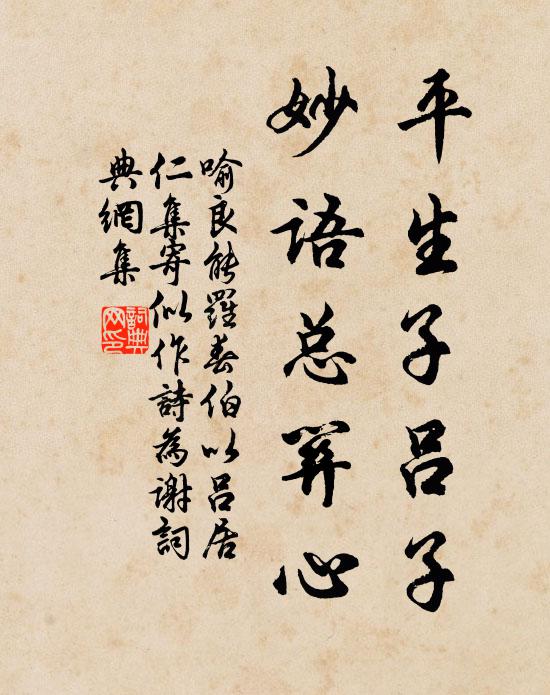 平生子吕子
妙语总关心
喻良能羅春伯以吕居
仁集寄似作詩為谢詞
典網集
詞典
网印